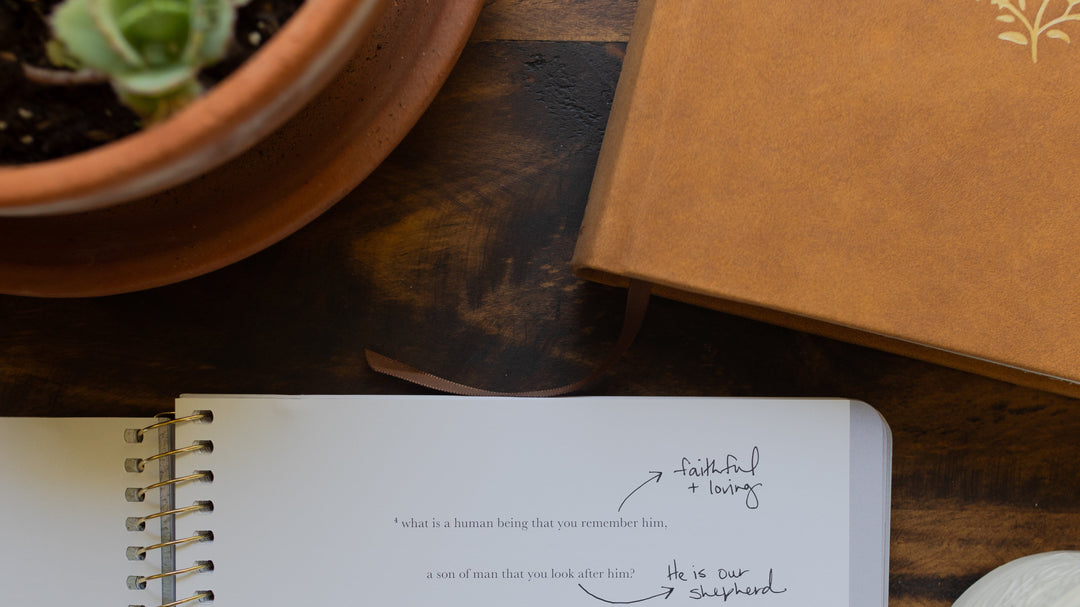 faithful
+ loving
⁴ what is a human being that you remember him,
a son of man that you look after him?
He is our
shepherd